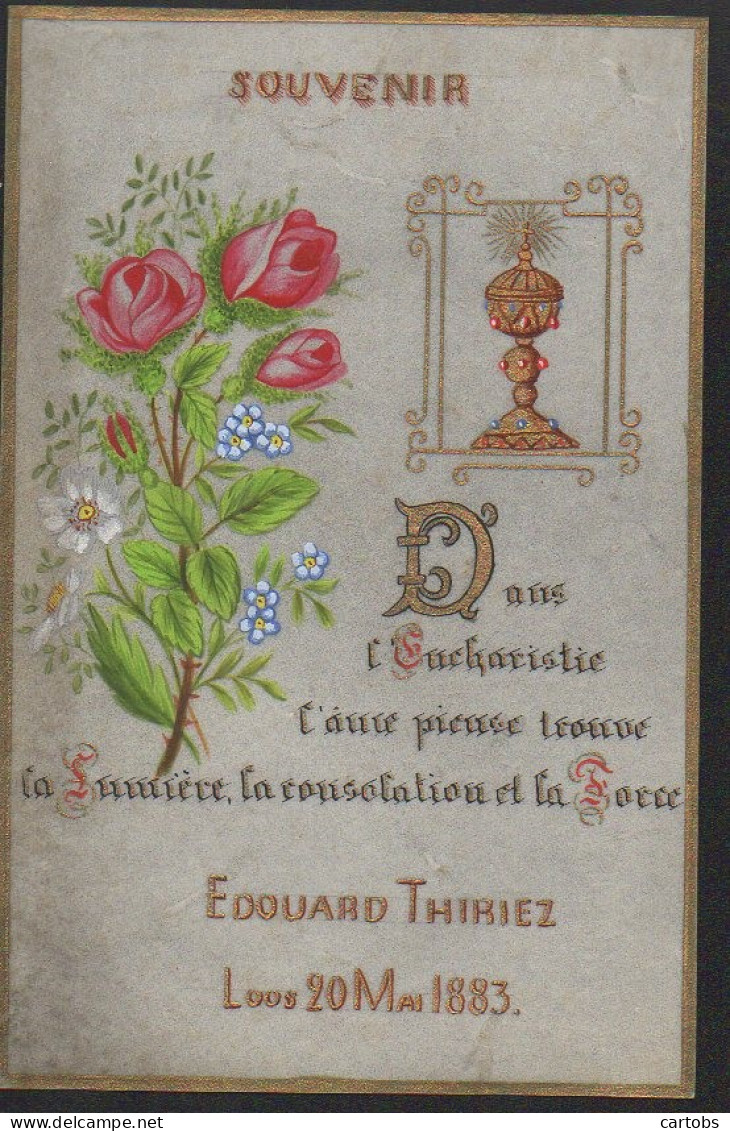 SOUVENIR
Dans
l'Eucharistie
l'âme pieuse trouve
la Lumière, la consolation et la Force
EDOUARD THIRIEZ
LOOS 20 MAI 1883.
delcampe.net
cartobs